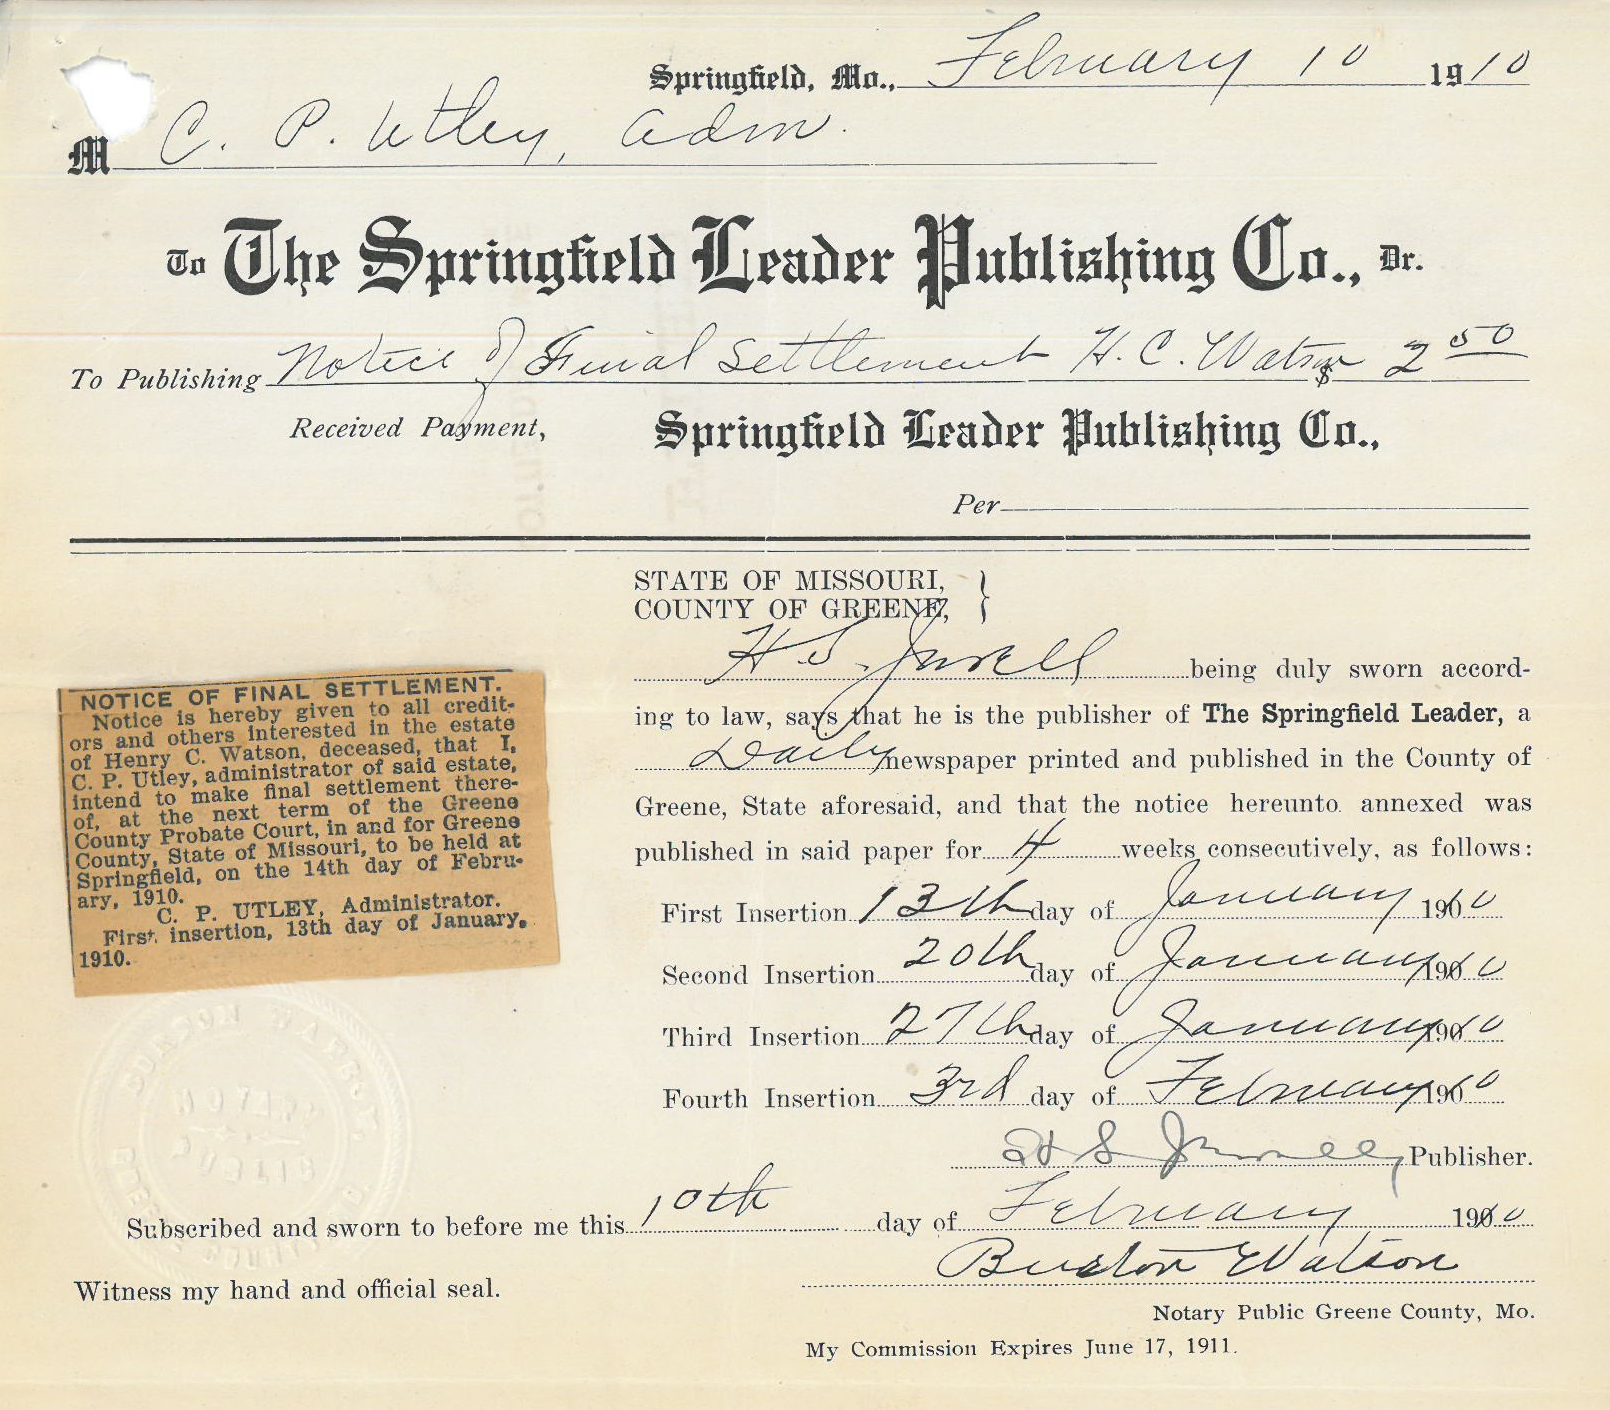 Springfield, Mo., February 10 1910
M C. P. Utley, Adm.
To The Springfield Leader Publishing Co., Dr.
To Publishing Notice of Final Settlement H. C. Watson $ 2 50
Received Payment, Springfield Leader Publishing Co.,
Per
STATE OF MISSOURI, }
COUNTY OF GREENE,
H. S. Jewell being duly sworn accord-
ing to law, says that he is the publisher of The Springfield Leader, a
Daily newspaper printed and published in the County of
Greene, State aforesaid, and that the notice hereunto annexed was
published in said paper for 4 weeks consecutively, as follows:
First Insertion 13th day of January 1910
Second Insertion 20th day of January 1910
Third Insertion 27th day of January 1910
Fourth Insertion 3rd day of February 1910
H S Jewell, Publisher.
NOTICE OF FINAL SETTLEMENT.
Notice is hereby given to all credit-
ors and others interested in the estate
of Henry C. Watson, deceased, that I,
C. P. Utley, administrator of said estate,
intend to make final settlement there-
of, at the next term of the Greene
County Probate Court, in and for Greene
County, State of Missouri, to be held at
Springfield, on the 14th day of Febru-
ary, 1910.
C. P. UTLEY, Administrator.
First insertion, 13th day of January,
1910.
NOTARY
PUBLIC
Subscribed and sworn to before me this 10th day of February 1910
Burton Watson
Witness my hand and official seal.
Notary Public Greene County, Mo.
My Commission Expires June 17, 1911.